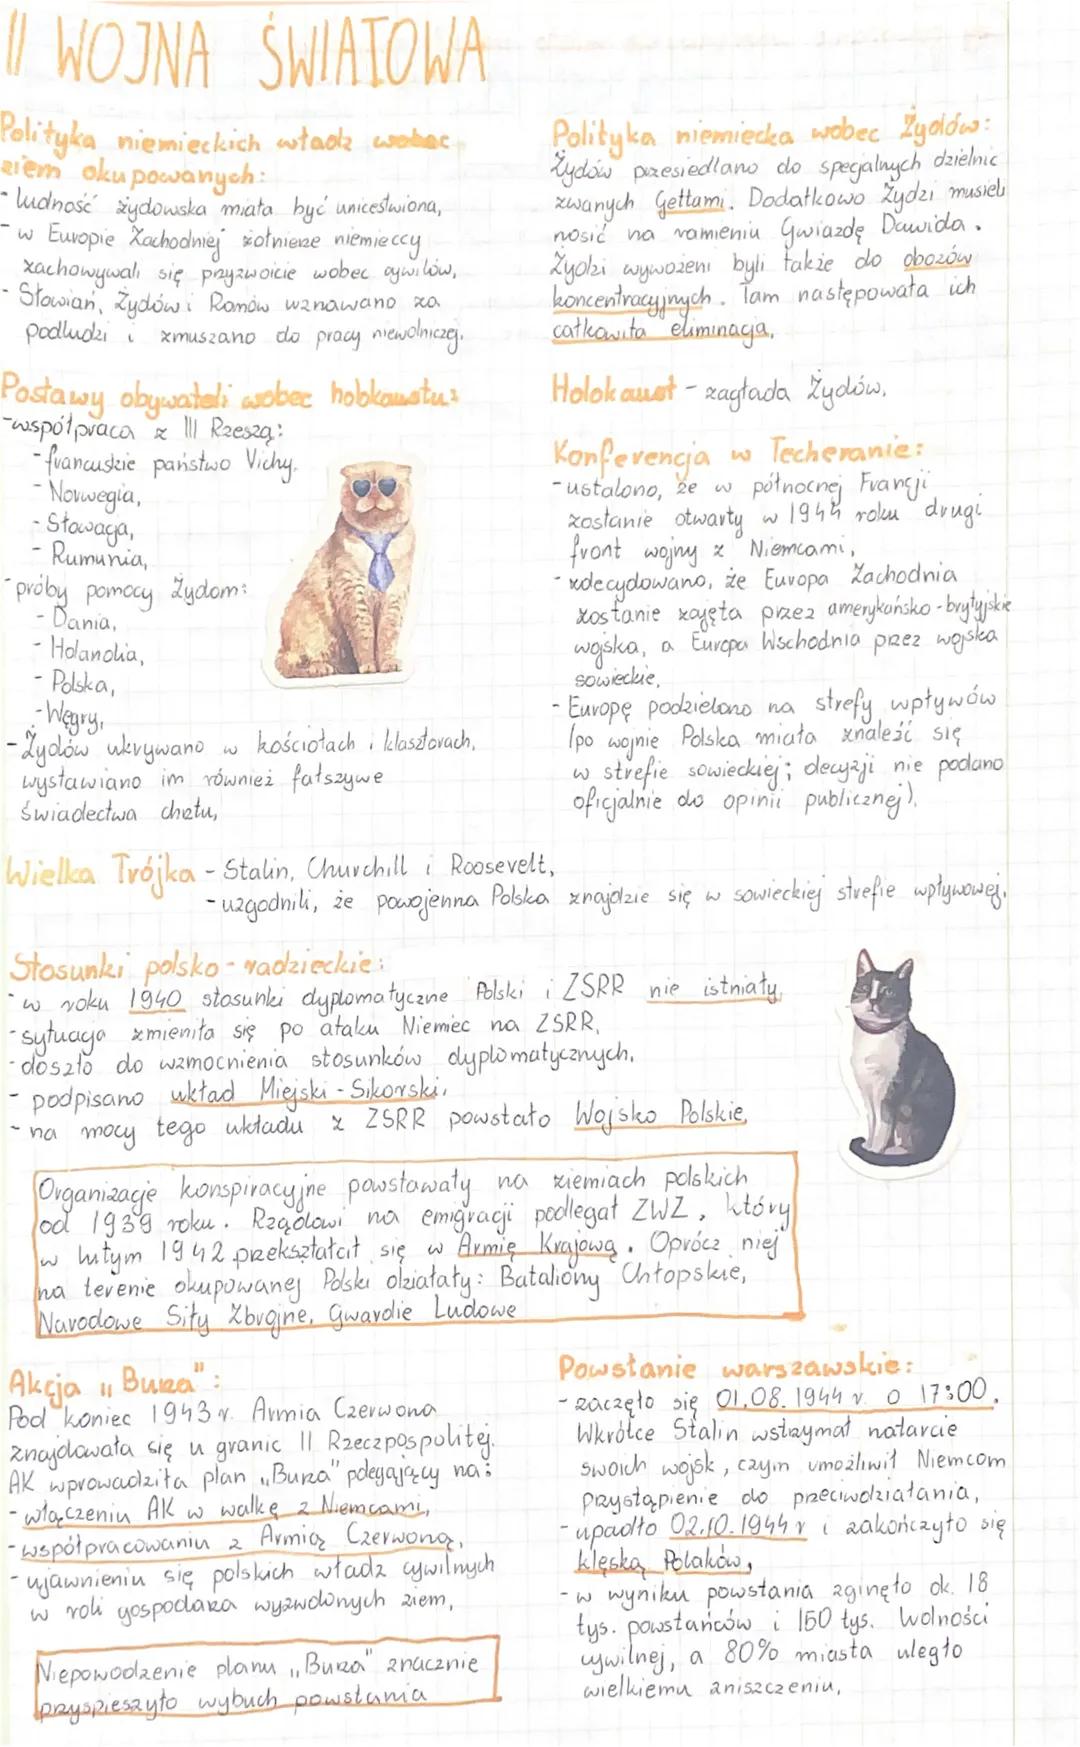 II WOJNA ŚWIATOWA
Polityka niemieckich władz wobec
ziem okupowanych:
- ludność żydowska miała być unicestwiona,
- w Europie Zachodniej żołnierze niemieccy
zachowywali się przyzwoicie wobec cywilów,
- Słowian, Żydów i Romów uznawano za
podludzi i zmuszano do pracy niewolniczej.
Postawy obywateli wobec holokaustu:
- współpraca z III Rzeszą:
- francuskie państwo Vichy,
- Norwegia,
- Słowacja,
- Rumunia,
- próby pomocy Żydom:
- Dania,
- Holandia,
- Polska,
- Węgry,
- Żydów ukrywano w kościołach i klasztorach,
wystawiano im również fałszywe
świadectwa chrztu,
Polityka niemiecka wobec Żydów:
Żydów przesiedlano do specjalnych dzielnic
zwanych Gettami. Dodatkowo Żydzi musieli
nosić na ramieniu Gwiazdę Dawida.
Żydzi wywożeni byli także do obozów
koncentracyjnych. Tam następowała ich
całkowita eliminacja.
Holokaust - zagłada Żydów.
Konferencja w Techeranie:
- ustalono, że w północnej Francji
zostanie otwarty w 1944 roku drugi
front wojny z Niemcami,
- zdecydowano, że Europa Zachodnia
zostanie zajęta przez amerykańsko-brytyjskie
wojska, a Europa Wschodnia przez wojska
sowieckie,
- Europę podzielono na strefy wpływów
(po wojnie Polska miała znaleźć się
w strefie sowieckiej; decyzji nie podano
oficjalnie do opinii publicznej).
Wielka Trójka - Stalin, Churchill i Roosevelt,
- uzgodnili, że powojenna Polska znajdzie się w sowieckiej strefie wpływowej.
Stosunki polsko-radzieckie:
- w roku 1940 stosunki dyplomatyczne Polski i ZSRR nie istniały,
- sytuacja zmieniła się po ataku Niemiec na ZSRR,
- doszło do wzmocnienia stosunków dyplomatycznych,
- podpisano układ Miejski-Sikorski,
- na mocy tego układu z ZSRR powstało Wojsko Polskie,
Organizacje konspiracyjne powstawały na ziemiach polskich
od 1939 roku. Rządowi na emigracji podlegał ZWZ, który
w lutym 1942 przekształcił się w Armię Krajową. Oprócz niej
na terenie okupowanej Polski działały: Bataliony Chłopskie,
Narodowe Siły Zbrojne, Gwardie Ludowe
Akcja „Burza":
Pod koniec 1943 r. Armia Czerwona
znajdowała się u granic II Rzeczpospolitej.
AK wprowadziła plan „Burza" polegający na:
- włączeniu AK w walkę z Niemcami,
- współpracowaniu z Armią Czerwoną,
- ujawnieniu się polskich władz cywilnych
w roli gospodarza wyzwolonych ziem,
Niepowodzenie planu „Burza" znacznie
przyspieszyło wybuch powstania
Powstanie warszawskie:
- zaczęło się 01.08.1944 r. o 17:00.
Wkrótce Stalin wstrzymał natarcie
swoich wojsk, czym umożliwił Niemcom
przystąpienie do przeciwdziałania,
- upadło 02.10.1944 r i zakończyło się
klęską Polaków,
- w wyniku powstania zginęło ok. 18
tys. powstańców i 150 tys. wolności
cywilnej, a 80% miasta uległo
wielkiemu zniszczeniu,